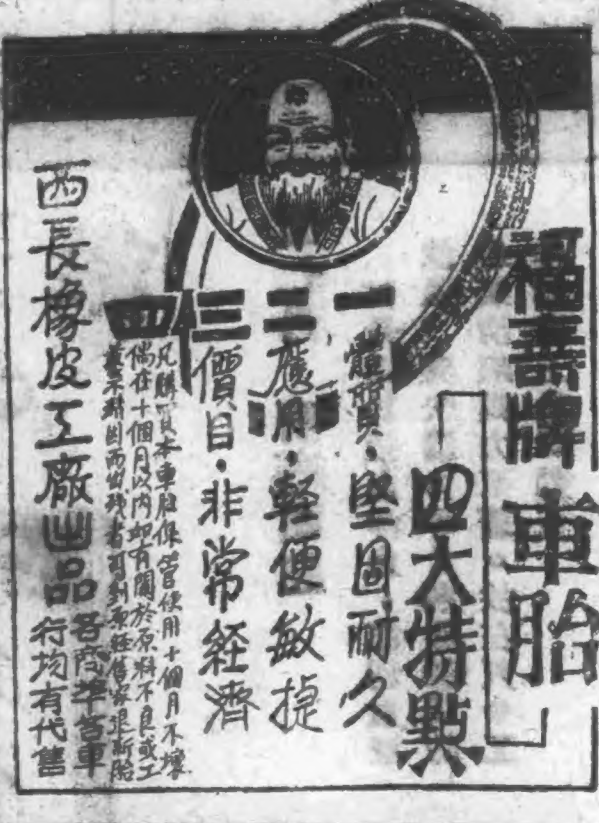 福壽牌 車胎
四大特點
一 體質・堅固耐久
二 應用・輕便敏捷
三 價目・非常經濟
四 凡購買本車胎保管使用十個月不壞
倘在十個月以內如有關於原料不良或工
藝不精因而損壞者可到原經售家退新胎
西長橡皮工廠出品
各商埠各車
行均有代售